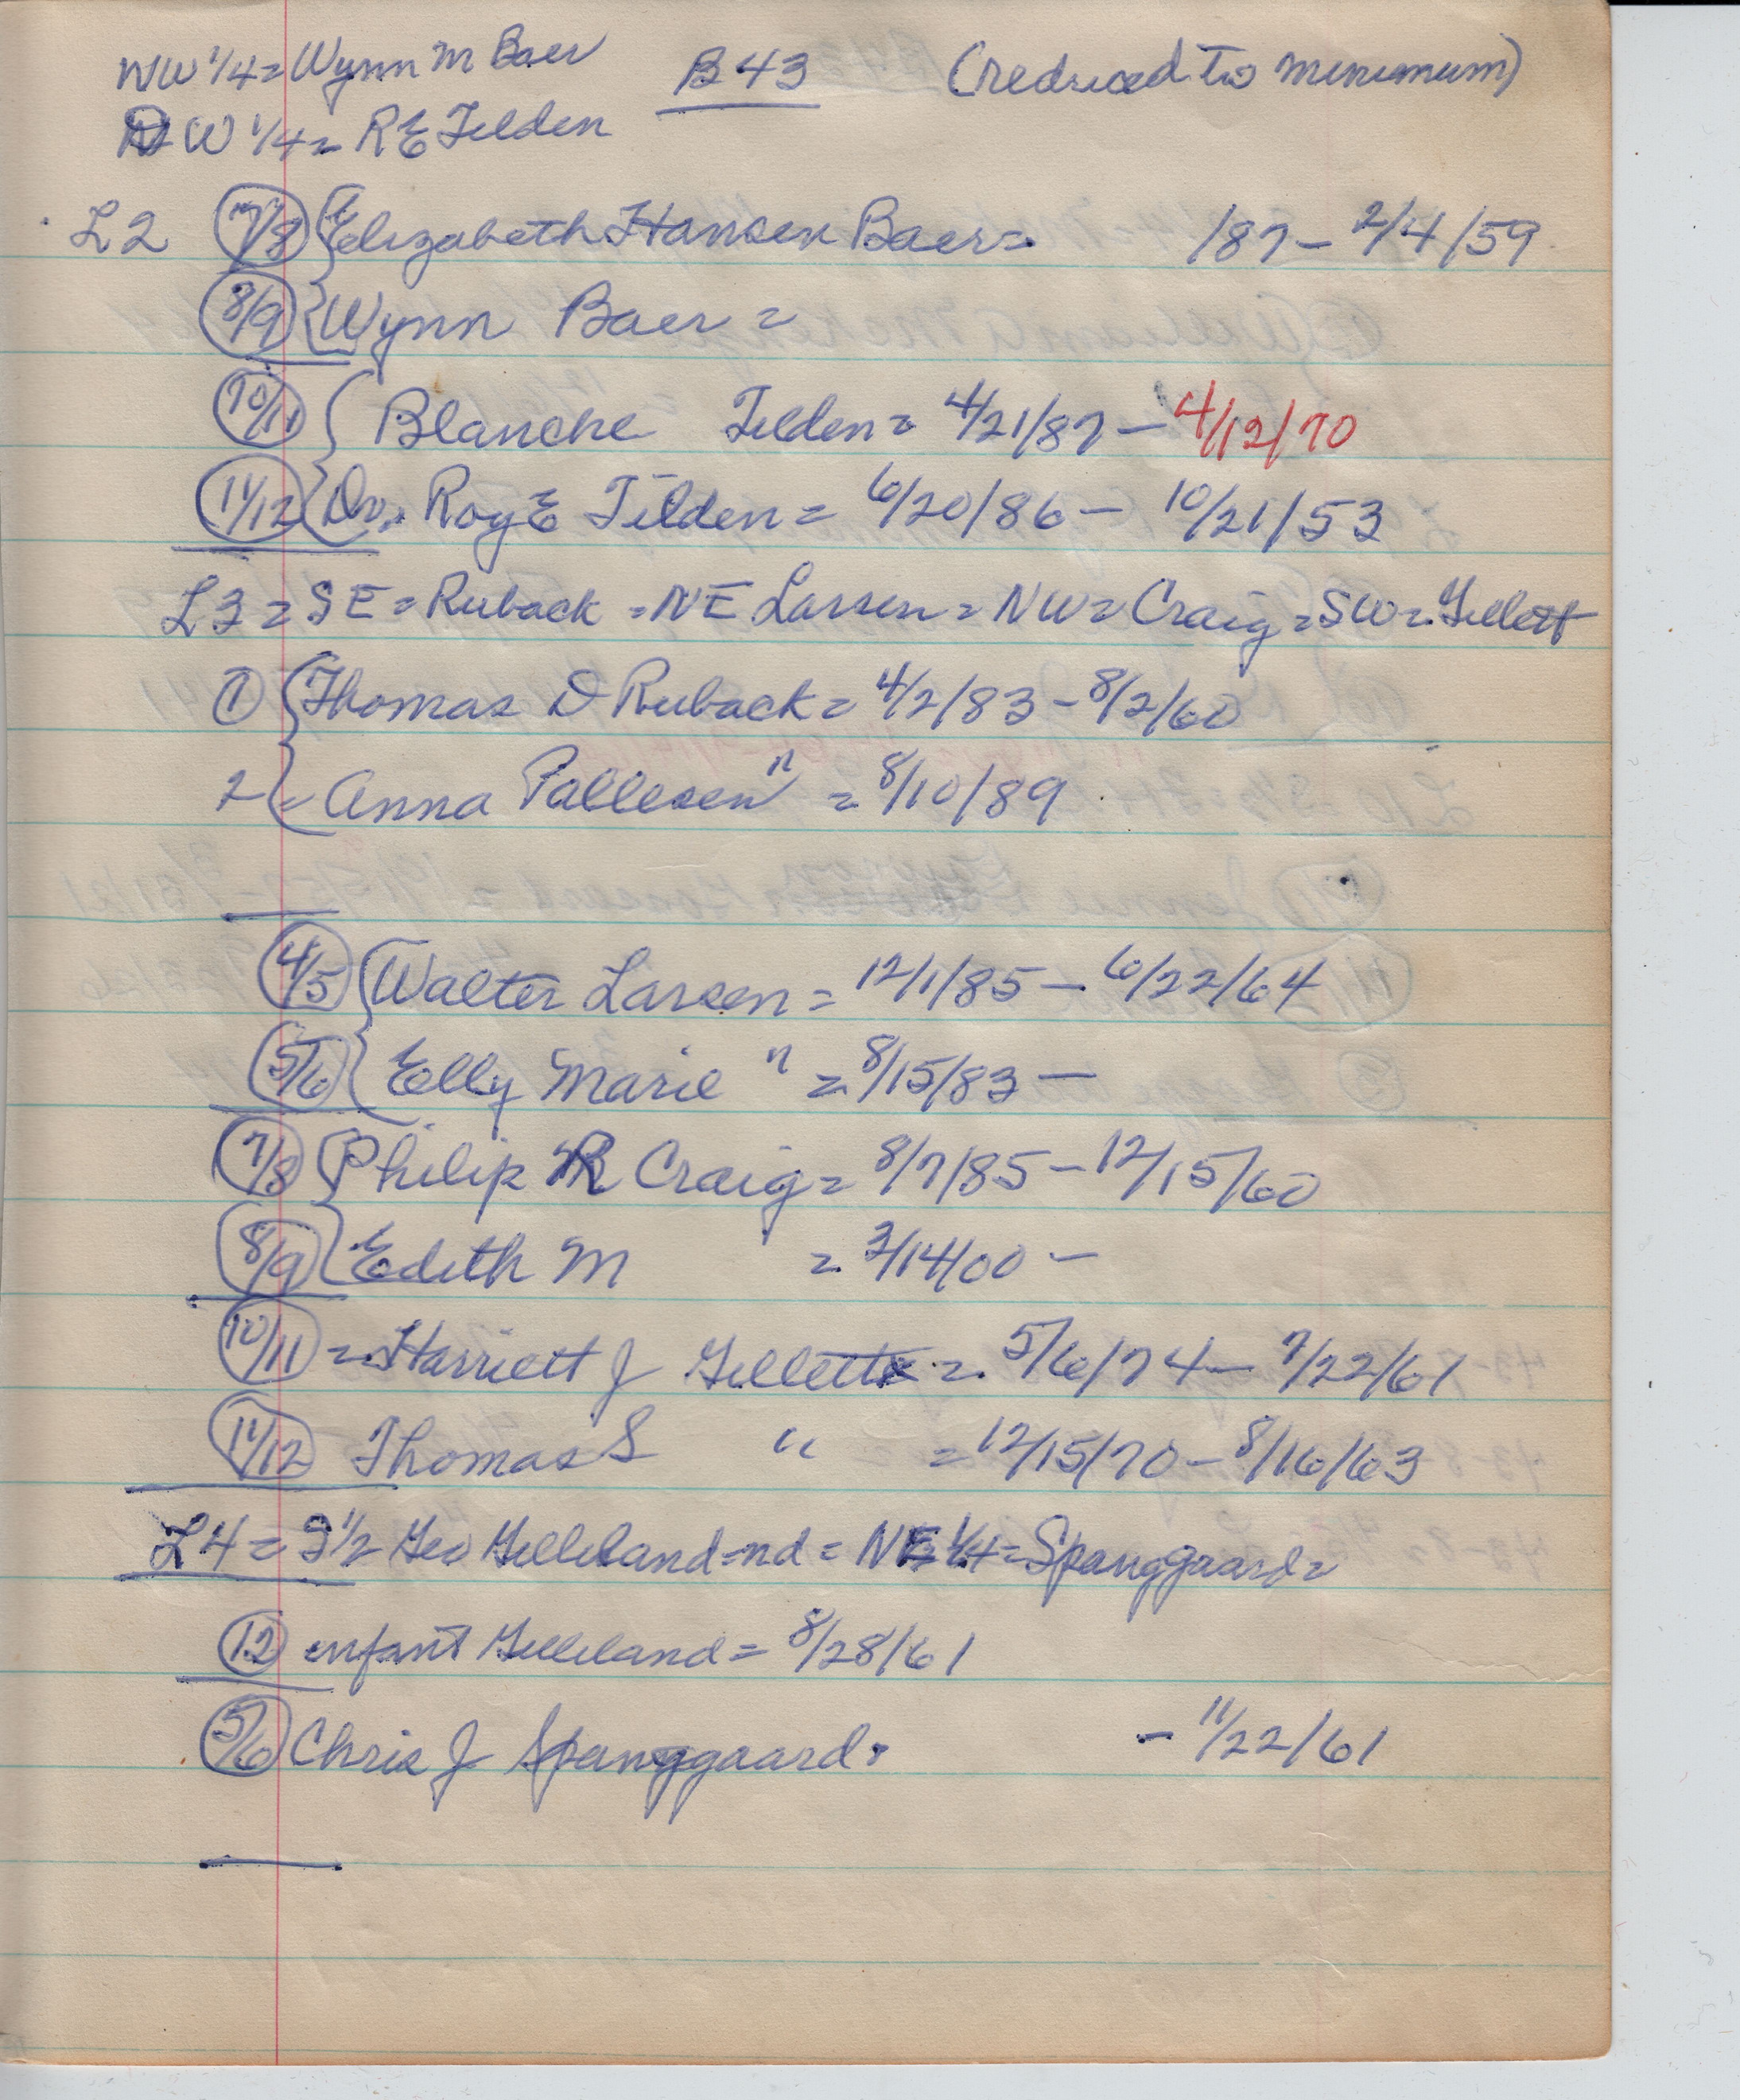 NW 1/4 = Wynn M Baer B 43 (reduced to minimum)
SW 1/4 = R E Tilden
L2 7/8 { Elizabeth Hansen Baer = /87 - 2/4/59
8/9 { Wynn Baer =
10/11 { Blanche Tilden = 4/21/87 - 4/12/70
11/12 { Dr. Roy E Tilden = 6/20/86 - 10/21/53
L3 = SE = Ruback = NE Larsen = NW = Craig = SW = Gillett
1 { Thomas D Ruback = 4/2/83 - 8/2/60
2 { = Anna Pallesen " = 8/10/89
4/5 { Walter Larsen = 12/1/85 - 6/22/64
5/6 { Elly Marie " = 8/15/83 -
7/8 { Philip R Craig = 8/7/85 - 12/15/60
8/9 { Edith M = 3/14/00 -
10/11 = Harriett J Gillett = 5/6/74 - 7/22/61
11/12 Thomas S " = 12/15/70 - 8/16/63
L4 = S 1/2 Geo Gilleland-nd = NE 1/4 = Spanggaard =
12 infant Gilleland = 8/28/61
5/6 Chris J Spanggaard. - 11/22/61